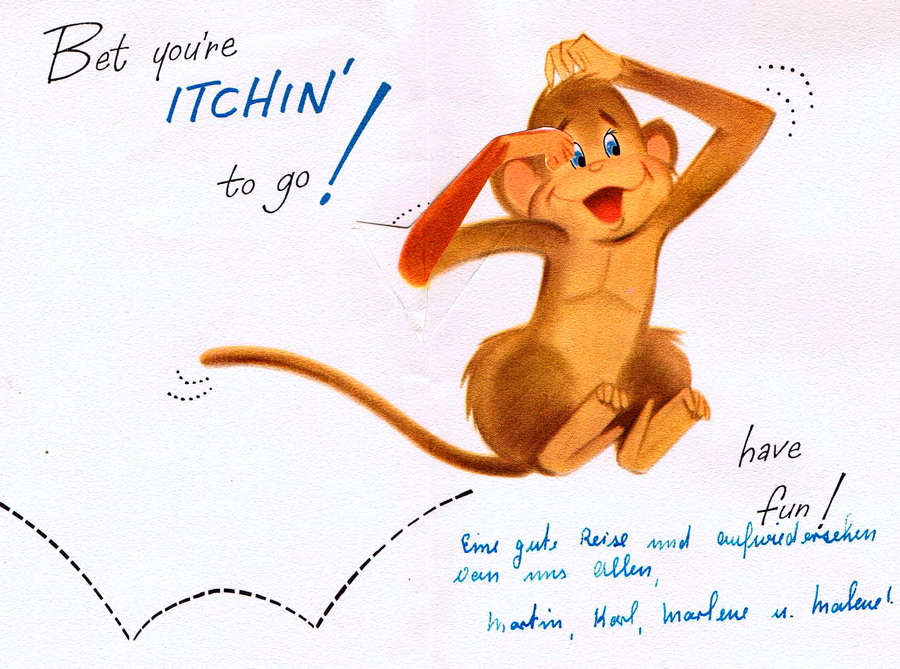 Bet you're
ITCHIN'
to go!
have
fun!
Eine gute Reise und aufwiedersehen
von uns allen,
Martin, Karl, Marlene u. Malene!